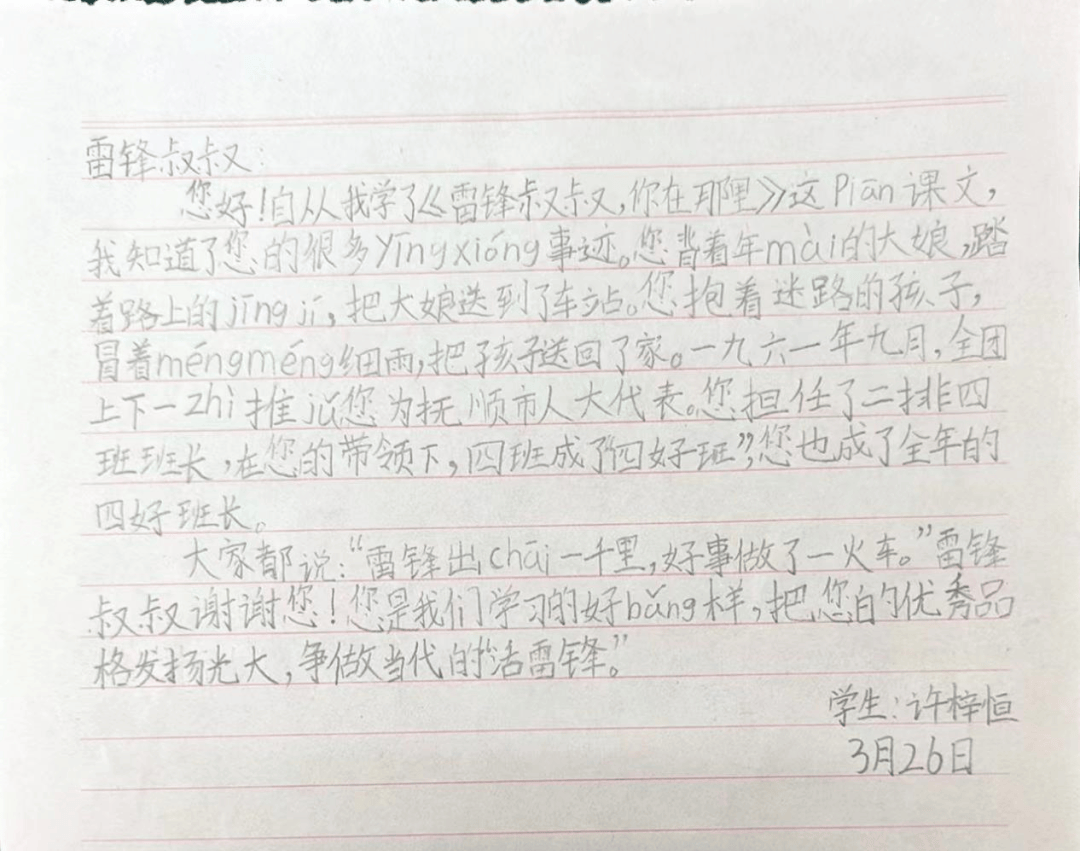 雷锋叔叔:
您好!自从我学了《雷锋叔叔,你在哪里》这Piān课文,
我知道了您的很多yīngxióng事迹。您背着年mài的大娘,踏
着路上的jīngjí,把大娘送到了车站。您抱着迷路的孩子,
冒着méngméng细雨,把孩子送回了家。一九六一年九月,全团
上下一zhì推jǔ您为抚顺市人大代表。您担任了二排四
班班长,在您的带领下,四班成了“四好班”,您也成了全年的
四好班长。
大家都说:“雷锋出chāi一千里,好事做了一火车。”雷锋
叔叔谢谢您!您是我们学习的好bǎng样,把您的优秀品
格发扬光大,争做当代的“活雷锋。”
学生:许梓恒
3月26日